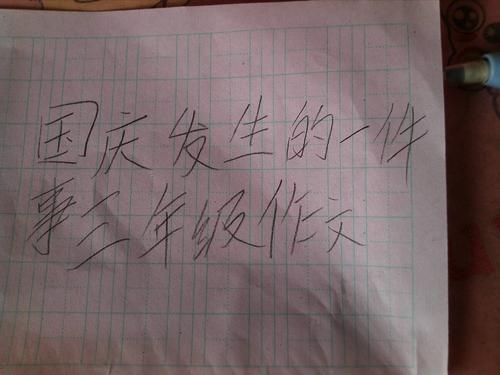 国庆发生的一件
事二年级作文